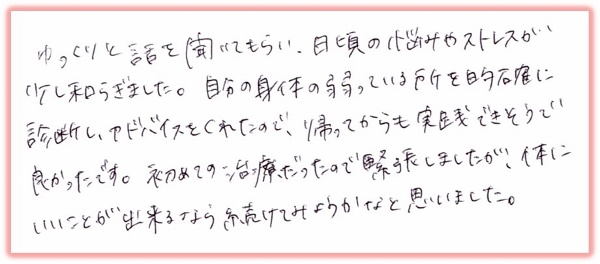 ゆっくりと話を聞いてもらい、日頃の悩みやストレスが
少し和らぎました。自分の身体の弱っている所を的確に
診断し、アドバイスをくれたので、帰ってからも実践できそうで
良かったです。初めての治療だったので緊張しましたが、体に
いいことが出来るなら続けてみようかなと思いました。